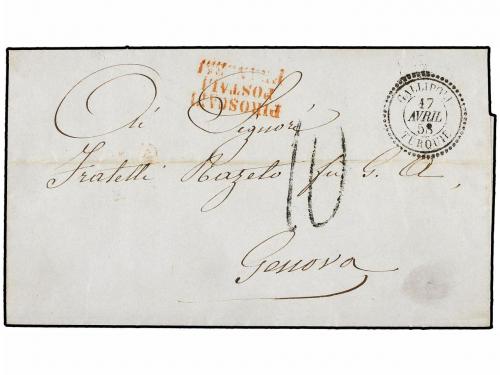 PIROSCAFI
POSTALI
FRANCESI
GALLIPOLI
17
AVRIL
58
TURQUIE
Ai Signori
Fratelli Razeto fu G. A.
10
Genova